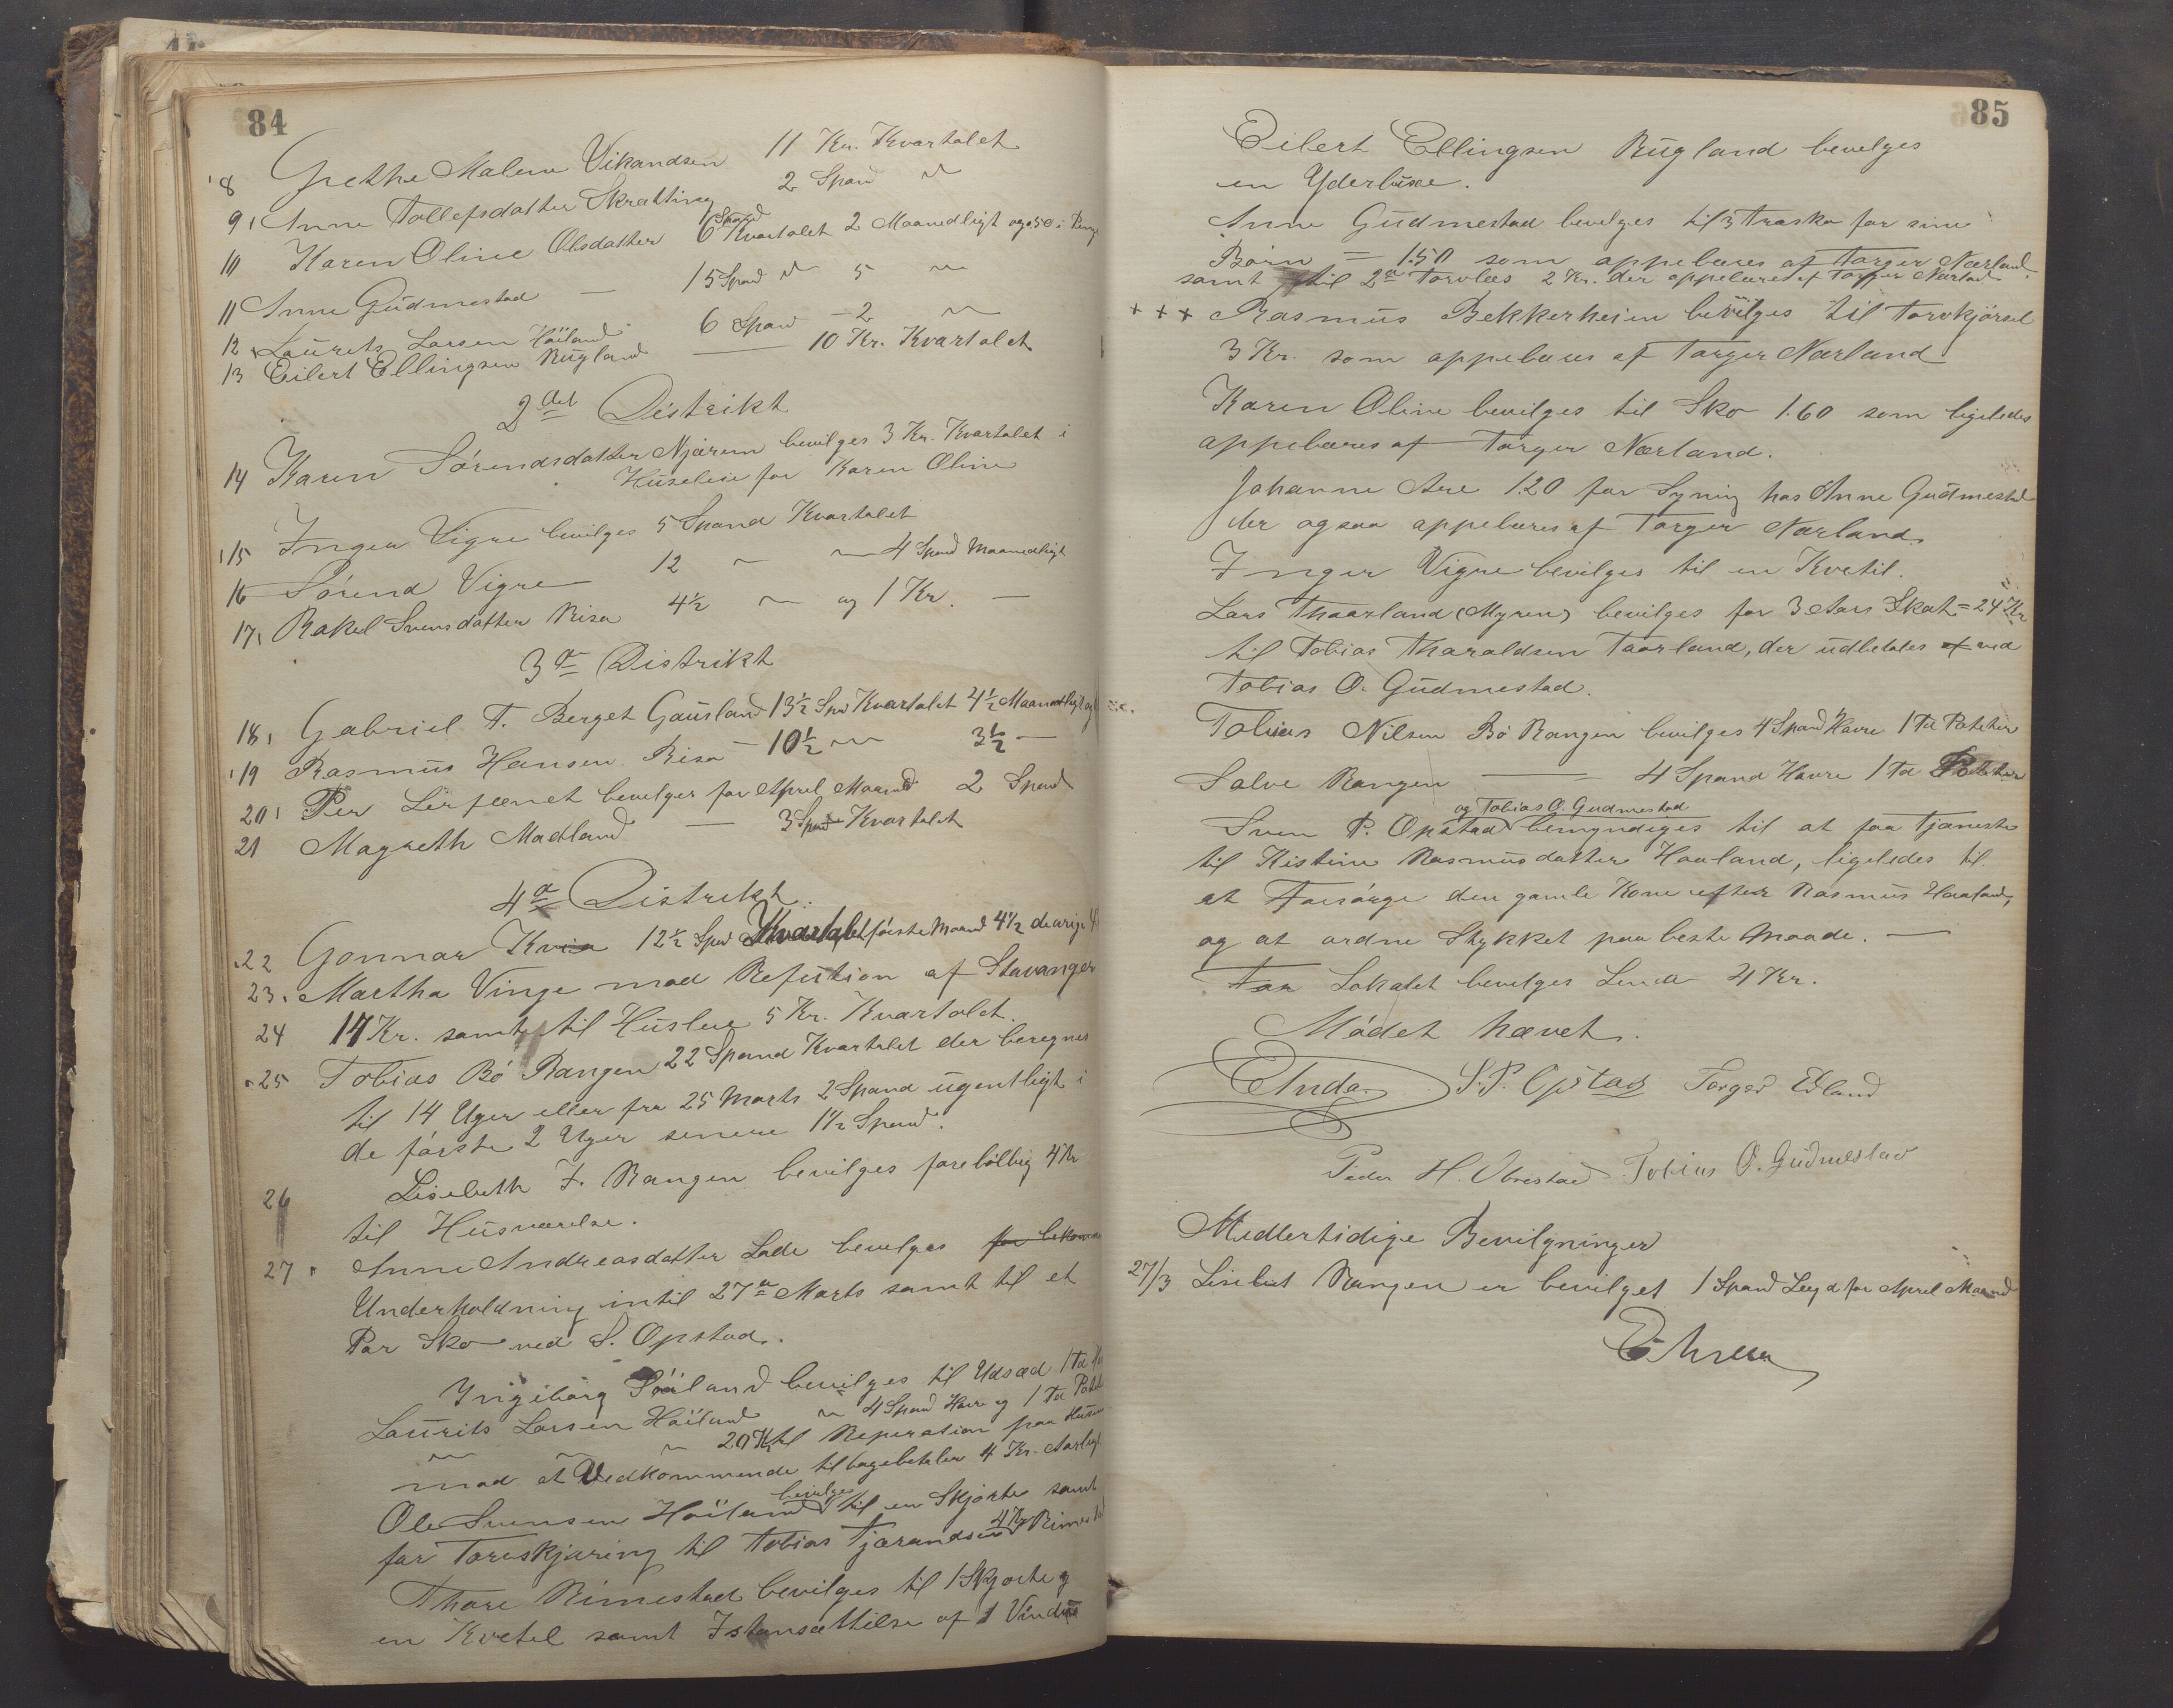 84
8 Grethe Malene Vikandsen 11 Kr. Kvartalet
9 Anne Tollefsdatter Skretting 2 Spand ~
10 Karen Oline Olsdatter 6 Spand Kvartalet 2 Maanedligt og 50 i Penge
11 Anne Gudmestad — 15 Spand ~ 5 ~
12 Laurits Larsen Höiland 6 Spand — 2 ~
13 Eilert Ellingsen Rugland — 10 Kr. Kvartalet
2det Distrikt
14 Karen Sörendsdatter Njærem bevilges 3 Kr. Kvartalet i
Huseleie for Karen Oline
15 Inger Vigre bevilges 5 Spand Kvartalet
16 Sörend Vigre 12 ~ ~ 4 Spand Maanedligt
17 Rakel Svensdatter Risa 4½ ~ og 1 Kr. —
3die Distrikt
18 Gabriel T. Berget Gausland 13½ Spd Kvartalet 4½ Maanedligt og
19 Rasmus Hansen Risa — 10½ ~ 3½ —
20 Per Lerfænet bevilges for April Maaned 2 Spand
21 Magreth Madland — 3 Spand Kvartalet
4de Distrikt
22 Gonnar Kvia 12½ Spd Kvartalet förste Maaned 4½ de övrige 4
23 Martha Vinge mod Refution af Stavanger
24 14 Kr. samt til Husleie 5 Kr. Kvartalet.
25 Tobias Bö Rangen 22 Spand Kvartalet der beregnes
til 14 Uger eller fra 25 Marts 2 Spand ugentligt i
de förste 2 Uger senere 1½ Spand.
26 Lisebeth T. Rangen bevilges foreløbig 4 Kr
til Husværelse.
27 Anne Andreasdatter Lode bevilges for bekomm
Underholdning intil 27de Marts samt til et
Par Sko ved S. Opstad.
Ingeborg Söiland bevilges til Udsæd 1 Td
Laurits Larsen Höiland ~ 4 Spand Havre og 1 Td Potet
~ ~ ~ 20 Kr til Reperation paa Huse
mod at Vedkommende tilbagebetaler 4 Kr. Aarligt
Ole Svensen Höiland bevilges til en Skjorte samt
for Torvskjæring til Tobias Tjærandsen 4 Kr Rimestad
Thore Rimestad bevilges til 1 Skjorte og
en Kvetel samt Istansættelse af 1 Vindue
85
Eilert Ellingsen Rugland bevilges
en Yderbuxe.
Anne Gudmestad bevilges til 3 Træsko for sine
Börn = 1.50 som appebæres af Torger Nærland
samt til 2de Torvlæs 2 Kr. der appebæres af Torger Nærland
+ + + Rasmus Bekkerheien bevilges til Torvkjörsel
3 Kr. som appebæres af Torger Nærland
Karen Oline bevilges til Sko 1.60 som ligeledes
appebæres af Torger Nærland.
Johanne Are 1.20 for Syning hos Anne Gudmestad
der ogsaa appebæres af Torger Nærland.
Inger Vigre bevilges til en Kvetil.
Lars Thaarland (Myren) bevilges for 3 Aars Skat = 24 Kr
til Tobias Tharaldsen Taarland, der udbetales af ved
Tobias O. Gudmestad.
Tobias Nilsen Bö Rangen bevilges 4 Spand Havre 1 Td Poteter
Salve Rangen — 4 Spand Havre 1 Td Poteter
og Tobias O. Gudmestad
Sven P. Opstad bemyndiges til at faa Tjæneste
til Kistine Rasmusdatter Haaland, ligeledes til
at Forsörge den gamle Kone efter Rasmus Haaland,
og at ordne Stykket paa beste Maade. —
Faa Lokalet bevilges Lende 4 Kr.
Mödet hævet.
S. P. Opstad Torger Edland
Peder H. Obrestad Tobias O. Gudmestad
Midlertidige Bevilgninger
27/3 Lisebet Rangen er bevilget 1 Spand Byg for April Maaned